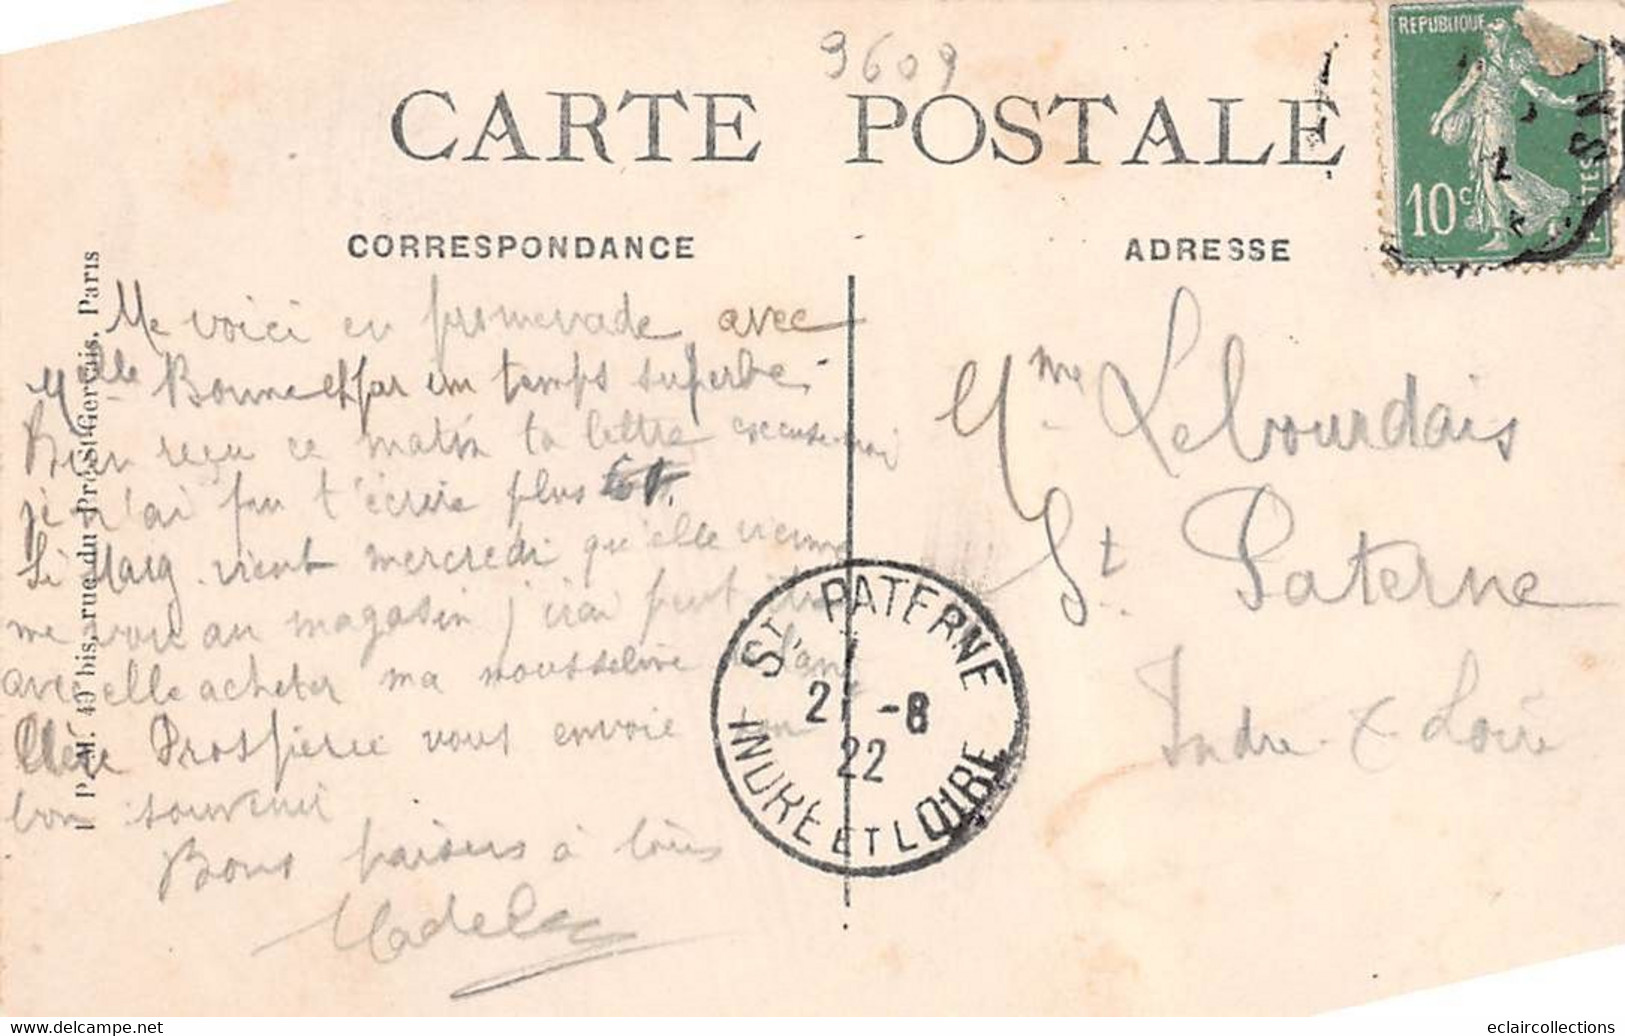 9609
CARTE POSTALE
REPUBLIQUE
10c
CORRESPONDANCE
ADRESSE
Me voici en promenade avec
Melle Bonne et par un temps superbe.
Bien reçu ce matin ta lettre excuse-moi
je n'ai pu t'écrire plus
Si Marg. vient mercredi qu'elle vienne
me voir au magasin j'irai peut être
avec elle acheter ma mousseline
Prospierre vous envoie un
bon souvenir
Bons baisers à tous
Mme Lebourdais
St Paterne
Indre & Loire
ST PATERNE
21 -8
22
INDRE ET LOIRE
I P. M. 40 bis, rue du Pré-St-Gervais, Paris
eclaircollections